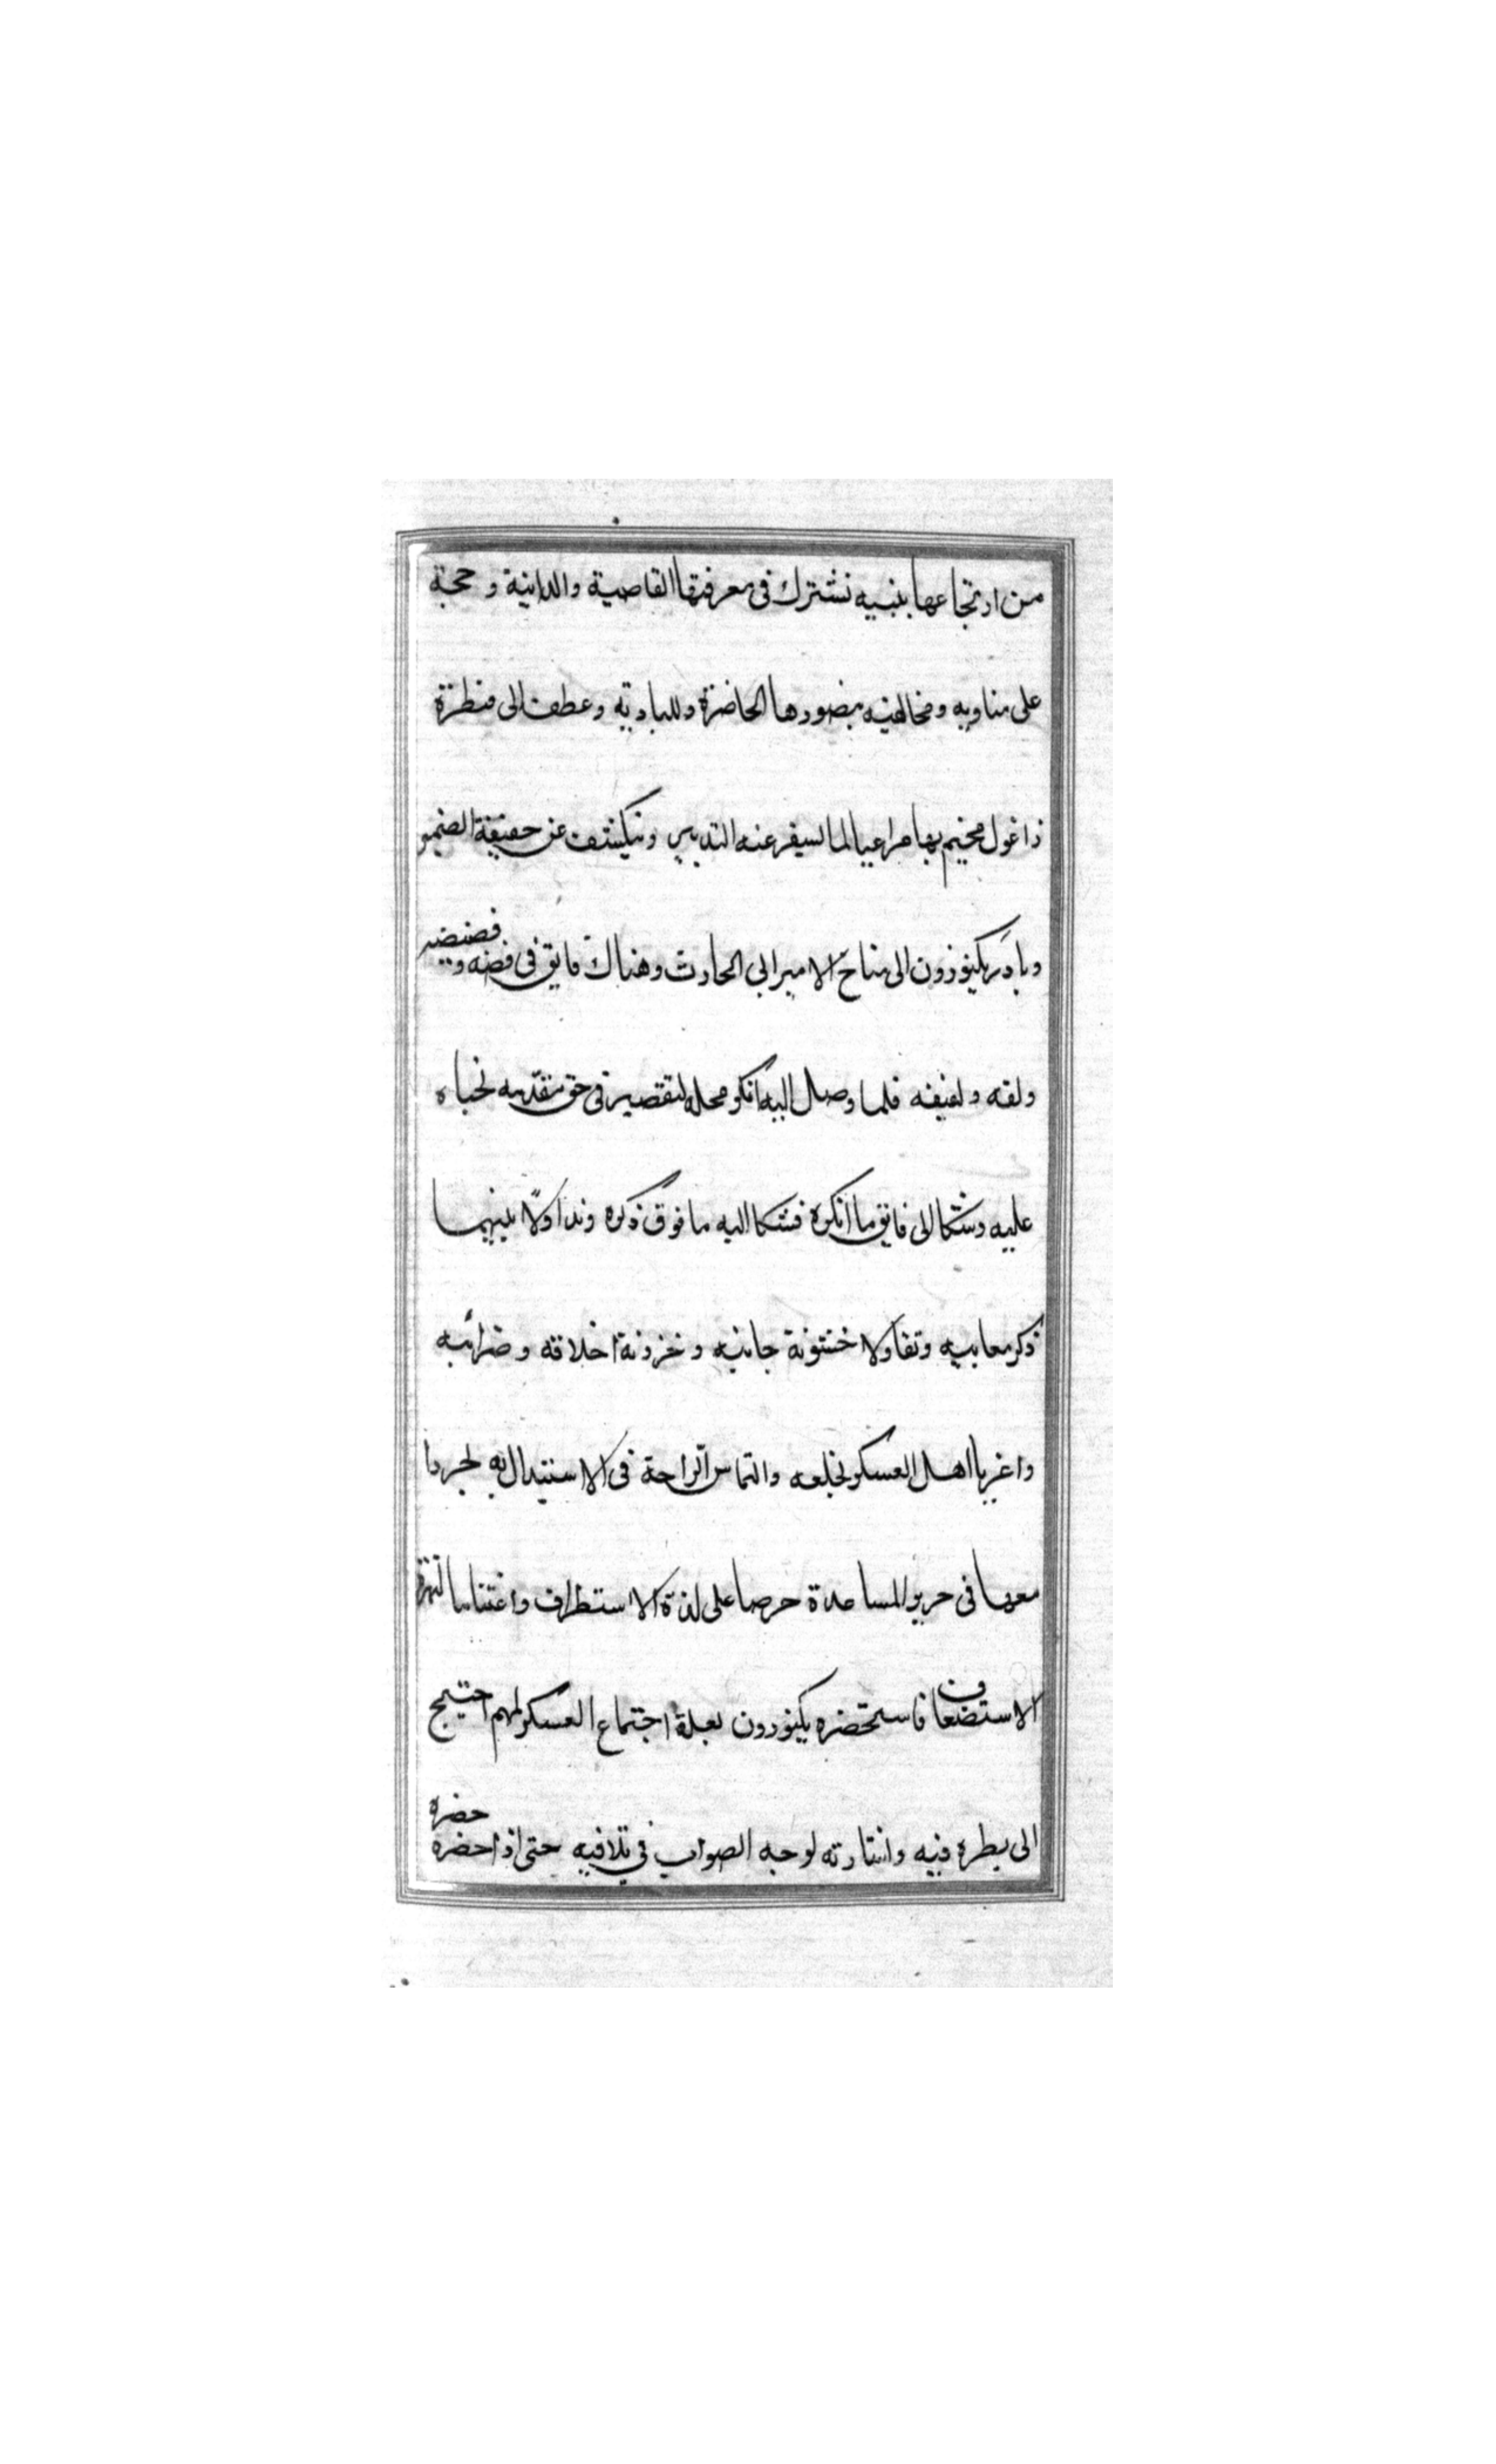 من ارتجاعها بنبيه نشترك فى معرفتها القاصية والدانية و حجة
على مناويه ومخالفيه بضورها الحاضرة وللبادية وعطف الى قنطرة
زاغول مخيم بها مراعيا لما ليسفر عنه التدبير وينكشف عن حقيقة الضمير
وبادر بكتوزون الى مناخ الامير ابى الحارث وهناك فايق فى قضه وقضيضه
ولفه ولفيفه فلما وصل اليه انكر محله لتقصير فى حق مقدمه نحباه
عليه وشكا الى فايق ما انكره فشكا اليه ما فوق ذكره وتداولا بينهما
ذكر معايبيه وتقاولا خشونة جانبه وخزونة اخلاقه وضرائبه
واغريا اهل العسكر بخلعه والتماس الراحة فى الاستبدال به لجروا
معهما فى حريو المساعدة حرصا على لذة الاستطراف واغتناما
الاستضعاف فاستحضره بكتوزون بعلة اجتماع العسكر لمهم احتيج
الى بطره فيه واشارته لوجه الصواب فى تلافيه حتى اذا حضره حضره